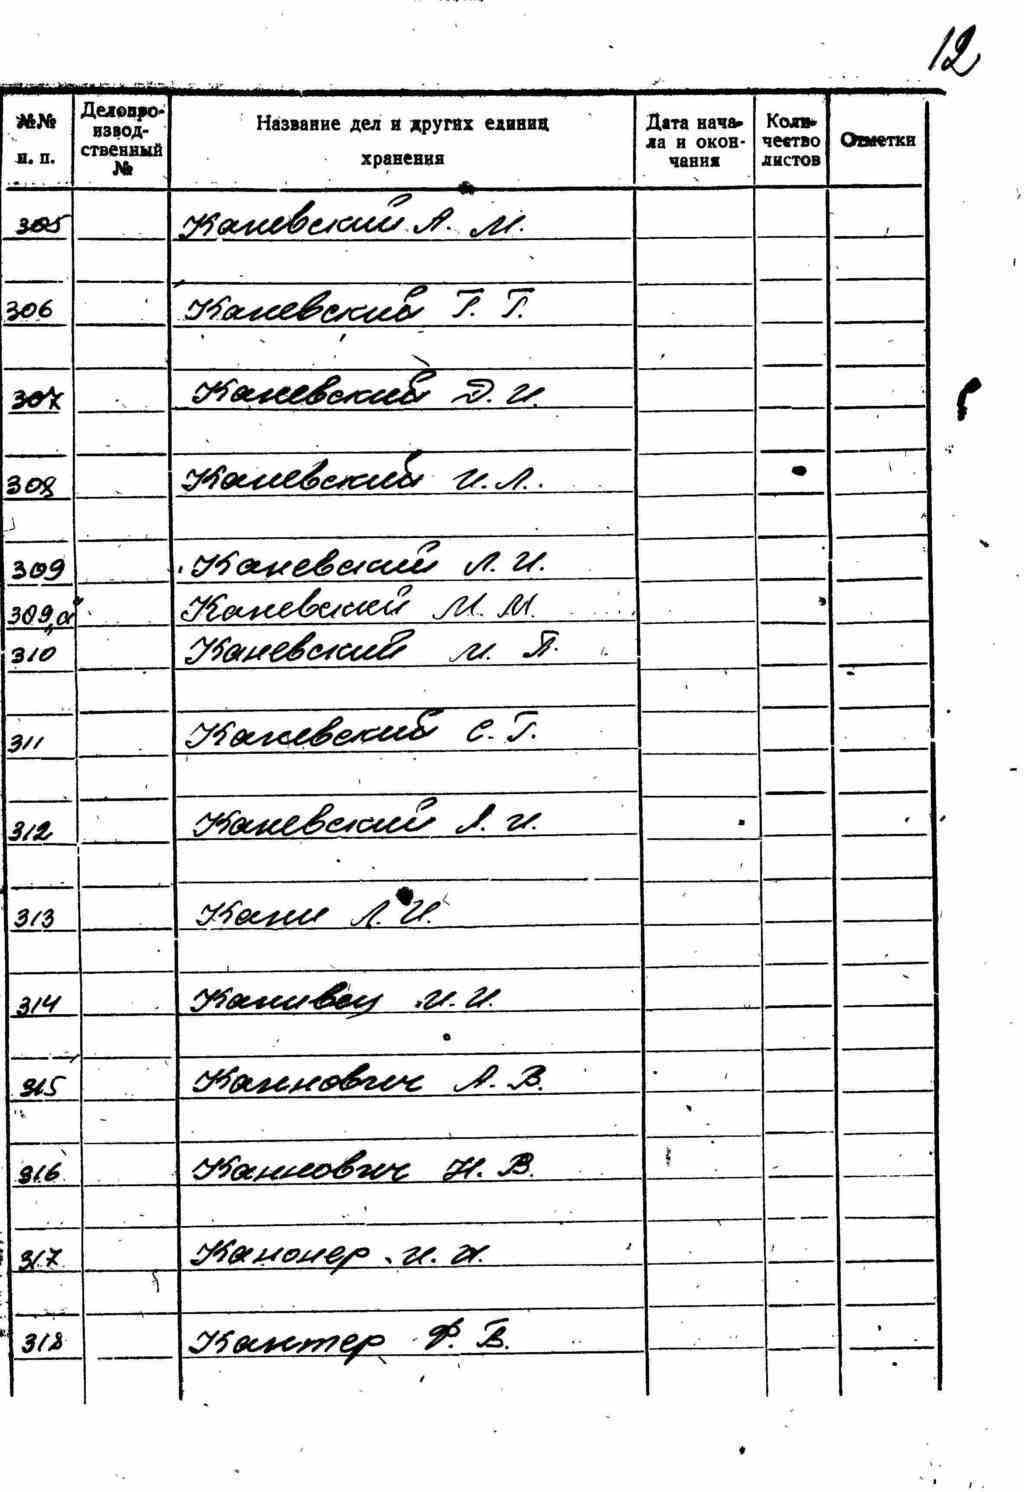 12
№№ п. п.
Делопроизводственный №
Название дел и других единиц хранения
Дата начала и окончания
Количество листов
Отметки
305 Каневский А. М.
306 Каневский Г. Г.
307 Каневский Д. И.
308 Каневский И. Л.
309 Каневский Л. И.
309,а Каневский М. М.
310 Каневский М. П.
311 Каневский С. Г.
312 Каневский Я. И.
313 Кани Л. И.
314 Канивец И. И.
315 Каннович А. В.
316 Каннович Н. В.
317 Канонер И. И.
318 Кантер Ф. В.